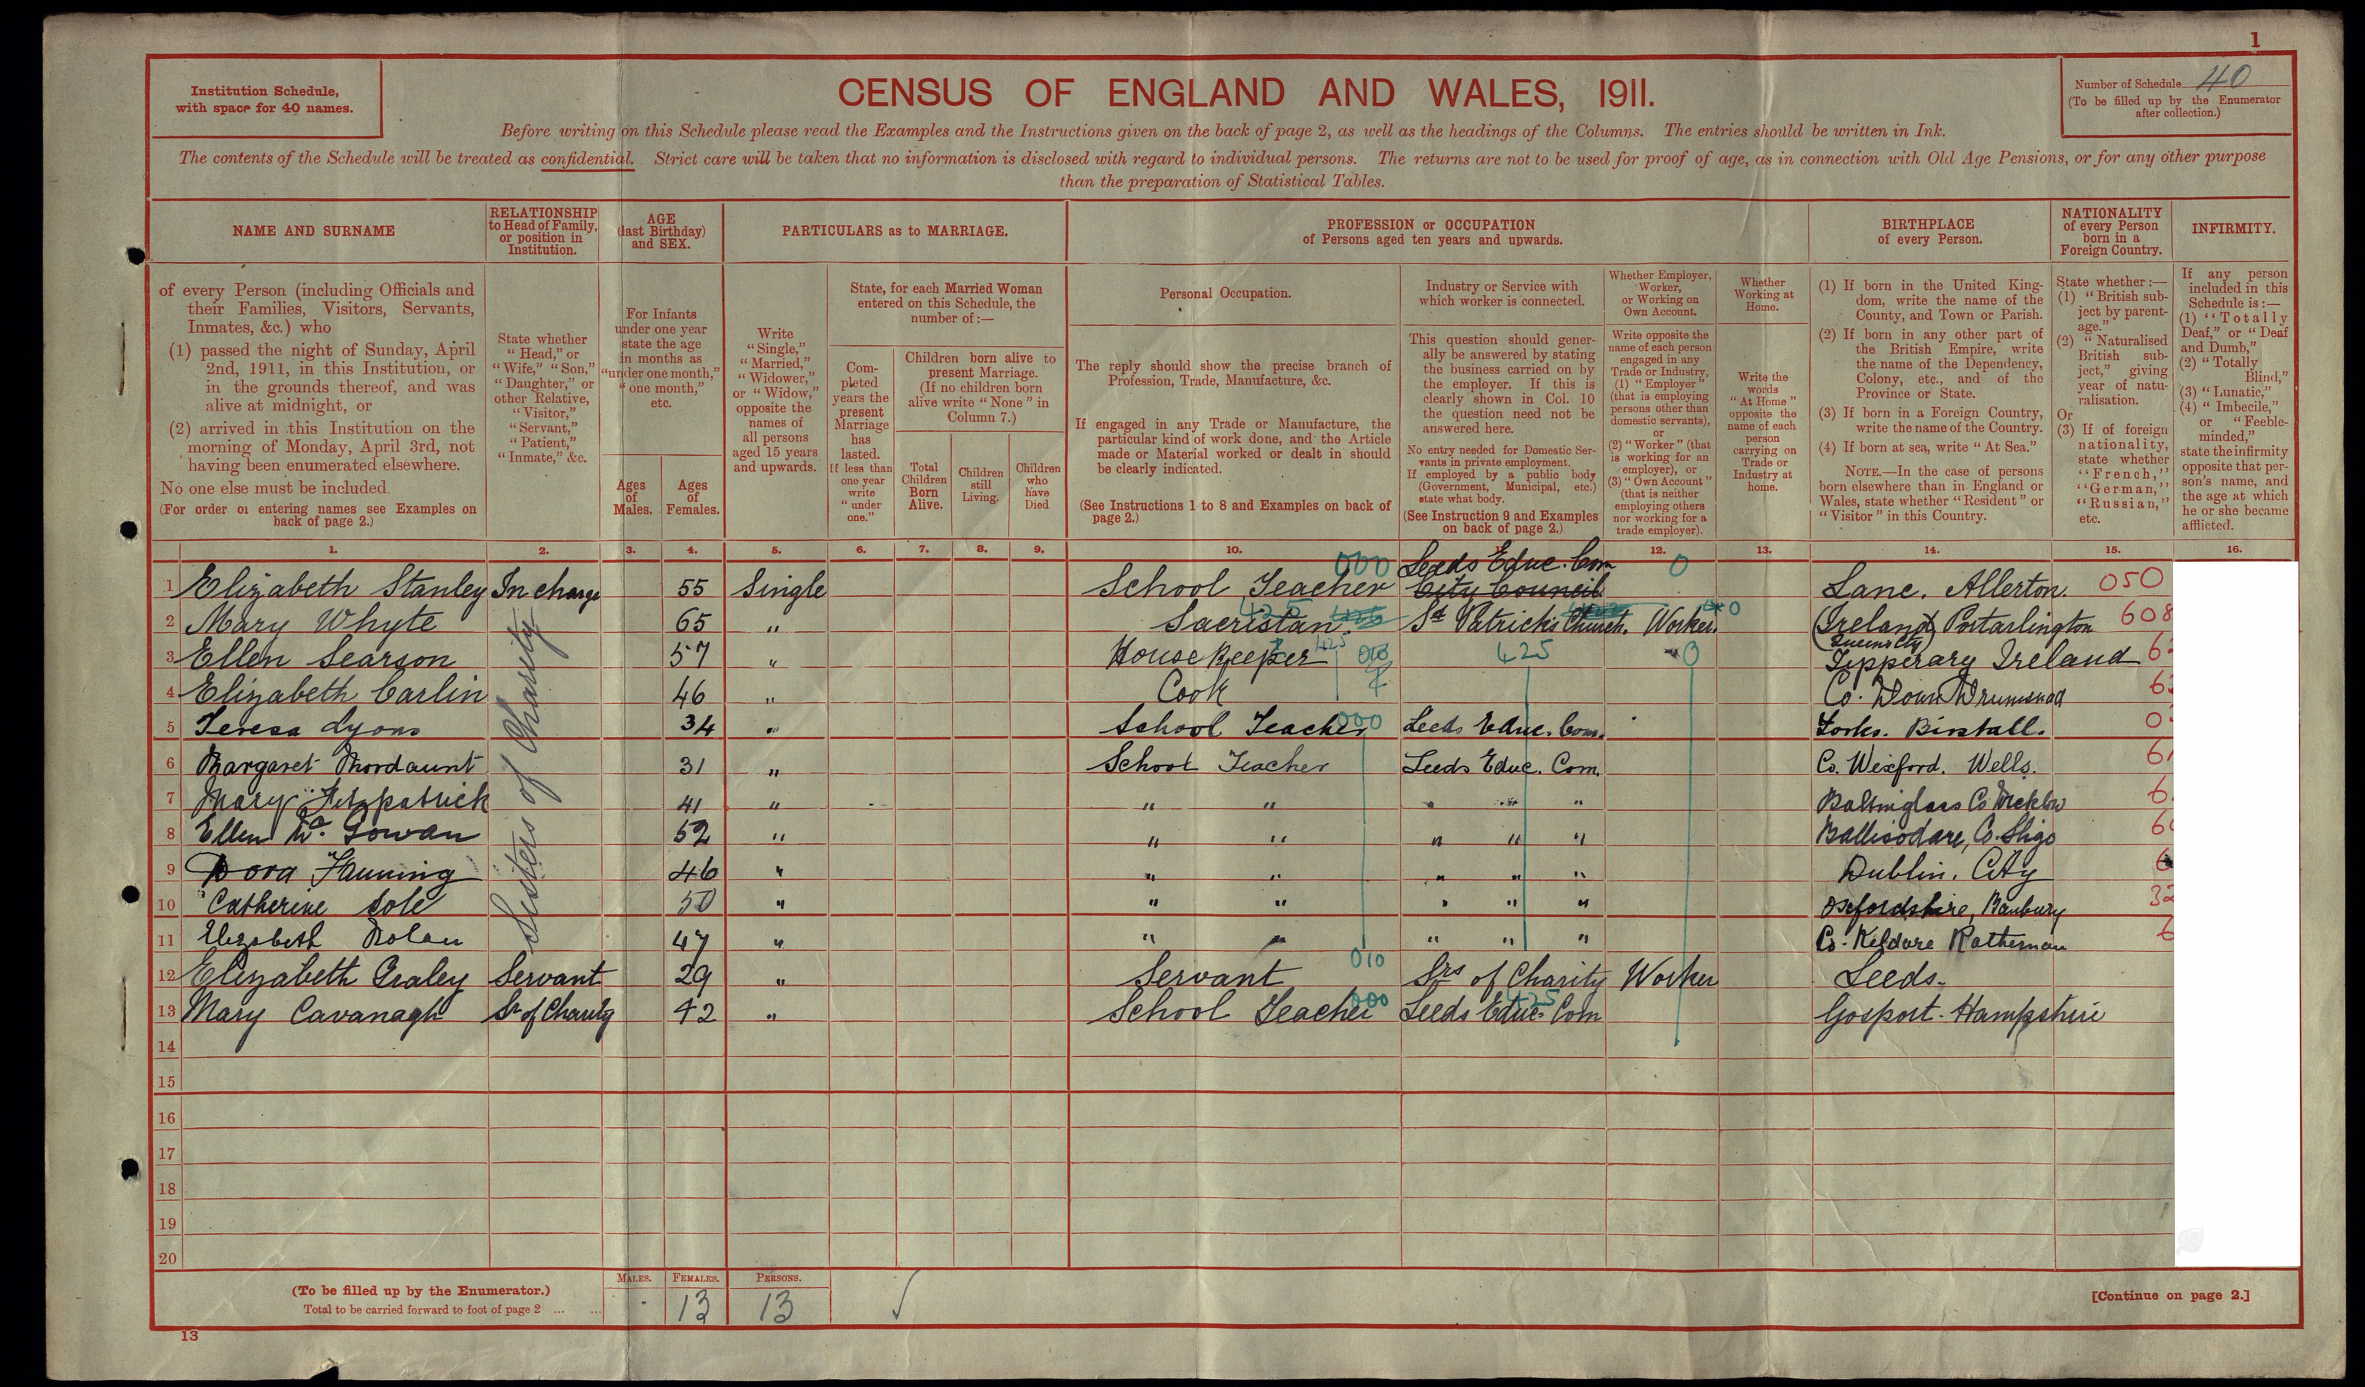 1
Institution Schedule,
with space for 40 names.
CENSUS OF ENGLAND AND WALES, 1911.
Number of Schedule 40
(To be filled up by the Enumerator
after collection.)
Before writing on this Schedule please read the Examples and the Instructions given on the back of page 2, as well as the headings of the Columns. The entries should be written in Ink.
The contents of the Schedule will be treated as confidential. Strict care will be taken that no information is disclosed with regard to individual persons. The returns are not to be used for proof of age, as in connection with Old Age Pensions, or for any other purpose
than the preparation of Statistical Tables.
NAME AND SURNAME
RELATIONSHIP
to Head of Family,
or position in
Institution.
AGE
(last Birthday)
and SEX.
PARTICULARS as to MARRIAGE.
PROFESSION or OCCUPATION
of Persons aged ten years and upwards.
BIRTHPLACE
of every Person.
NATIONALITY
of every Person
born in a
Foreign Country.
INFIRMITY.
of every Person (including Officials and
their Families, Visitors, Servants,
Inmates, &c.) who
(1) passed the night of Sunday, April
2nd, 1911, in this Institution, or
in the grounds thereof, and was
alive at midnight, or
(2) arrived in this Institution on the
morning of Monday, April 3rd, not
having been enumerated elsewhere.
No one else must be included.
(For order of entering names see Examples on
back of page 2.)
State whether
"Head," or
"Wife," "Son,"
"Daughter," or
other Relative,
"Visitor,"
"Servant,"
"Patient,"
"Inmate," &c.
For Infants
under one year
state the age
in months as
"under one month,"
"one month,"
etc.
Ages
of
Males.
Ages
of
Females.
Write
"Single,"
"Married,"
"Widower,"
or "Widow,"
opposite the
names of
all persons
aged 15 years
and upwards.
State, for each Married Woman
entered on this Schedule, the
number of:—
Com-
pleted
years the
present
Marriage
has
lasted.
If less than
one year
write
"under
one."
Children born alive to
present Marriage.
(If no children born
alive write "None" in
Column 7.)
Total
Children
Born
Alive.
Children
still
Living.
Children
who
have
Died.
Personal Occupation.
The reply should show the precise branch of
Profession, Trade, Manufacture, &c.
If engaged in any Trade or Manufacture, the
particular kind of work done, and the Article
made or Material worked or dealt in should
be clearly indicated.
(See Instructions 1 to 8 and Examples on back of
page 2.)
Industry or Service with
which worker is connected.
This question should gener-
ally be answered by stating
the business carried on by
the employer. If this is
clearly shown in Col. 10
the question need not be
answered here.
No entry needed for Domestic Ser-
vants in private employment.
If employed by a public body
(Government, Municipal, etc.)
state what body.
(See Instruction 9 and Examples
on back of page 2.)
Whether Employer,
Worker,
or Working on
Own Account.
Write opposite the
name of each person
engaged in any
Trade or Industry,
(1) "Employer"
(that is employing
persons other than
domestic servants),
or
(2) "Worker" (that
is working for an
employer), or
(3) "Own Account"
(that is neither
employing others
nor working for a
trade employer).
Whether
Working at
Home.
Write the
words
"At Home"
opposite the
name of each
person
carrying on
Trade or
Industry at
home.
(1) If born in the United King-
dom, write the name of the
County, and Town or Parish.
(2) If born in any other part of
the British Empire, write
the name of the Dependency,
Colony, etc., and of the
Province or State.
(3) If born in a Foreign Country,
write the name of the Country.
(4) If born at sea, write "At Sea."
NOTE.—In the case of persons
born elsewhere than in England or
Wales, state whether "Resident" or
"Visitor" in this Country.
State whether:—
(1) "British sub-
ject by parent-
age."
(2) "Naturalised
British sub-
ject," giving
year of natu-
ralisation.
Or
(3) If of foreign
nationality,
state whether
"French,"
"German,"
"Russian,"
etc.
If any person
included in this
Schedule is:—
(1) "Totally
Deaf," or "Deaf
and Dumb,"
(2) "Totally
Blind,"
(3) "Lunatic,"
(4) "Imbecile,"
or "Feeble-
minded,"
state the infirmity
opposite that per-
son's name, and
the age at which
he or she became
afflicted.
1. 2. 3. 4. 5. 6. 7. 8. 9. 10. 11. 12. 13. 14. 15. 16.
Sisters of Charity
000 Leeds Educ. Com 0
1 Elizabeth Stanley In charge 55 Single School Teacher City Council Lanc. Allerton. 050
2 Mary Whyte 65 " Sacristan. St Patrick's Church. Worker. (Ireland) Portarlington 608
(Queens Cty)
3 Ellen Searson 57 " Housekeeper 425 0 Tipperary Ireland
4 Elizabeth Carlin 46 " Cook Co. Down
5 Teresa Lyons 34 " School Teacher 000 Leeds Educ. Com. Yorks. Birstall.
6 Margaret Mordaunt 31 " School Teacher Leeds Educ. Com. Co. Wexford. Wells.
7 Mary Fitzpatrick 41 " " " " " " Baltinglass Co Wicklow
8 Ellen Mc Gowan 52 " " " " " " Ballisodare, Co. Sligo
9 Dora Fanning 46 " " " " " " Dublin. City
10 Catherine Sole 50 " " " " " " Oxfordshire, Banbury
11 Elizabeth Nolan 47 " " " " " " Co. Kildare
12 Elizabeth Graley Servant 29 " Servant 010 Srs of Charity Worker Leeds.
13 Mary Cavanagh Sr of Charity 42 " School Teacher 000 Leeds Educ. Com 425 Gosport. Hampshire
14
15
16
17
18
19
20
(To be filled up by the Enumerator.)
Total to be carried forward to foot of page 2 ... ...
MALES. FEMALES. PERSONS.
- 13 13
[Continue on page 2.]
13